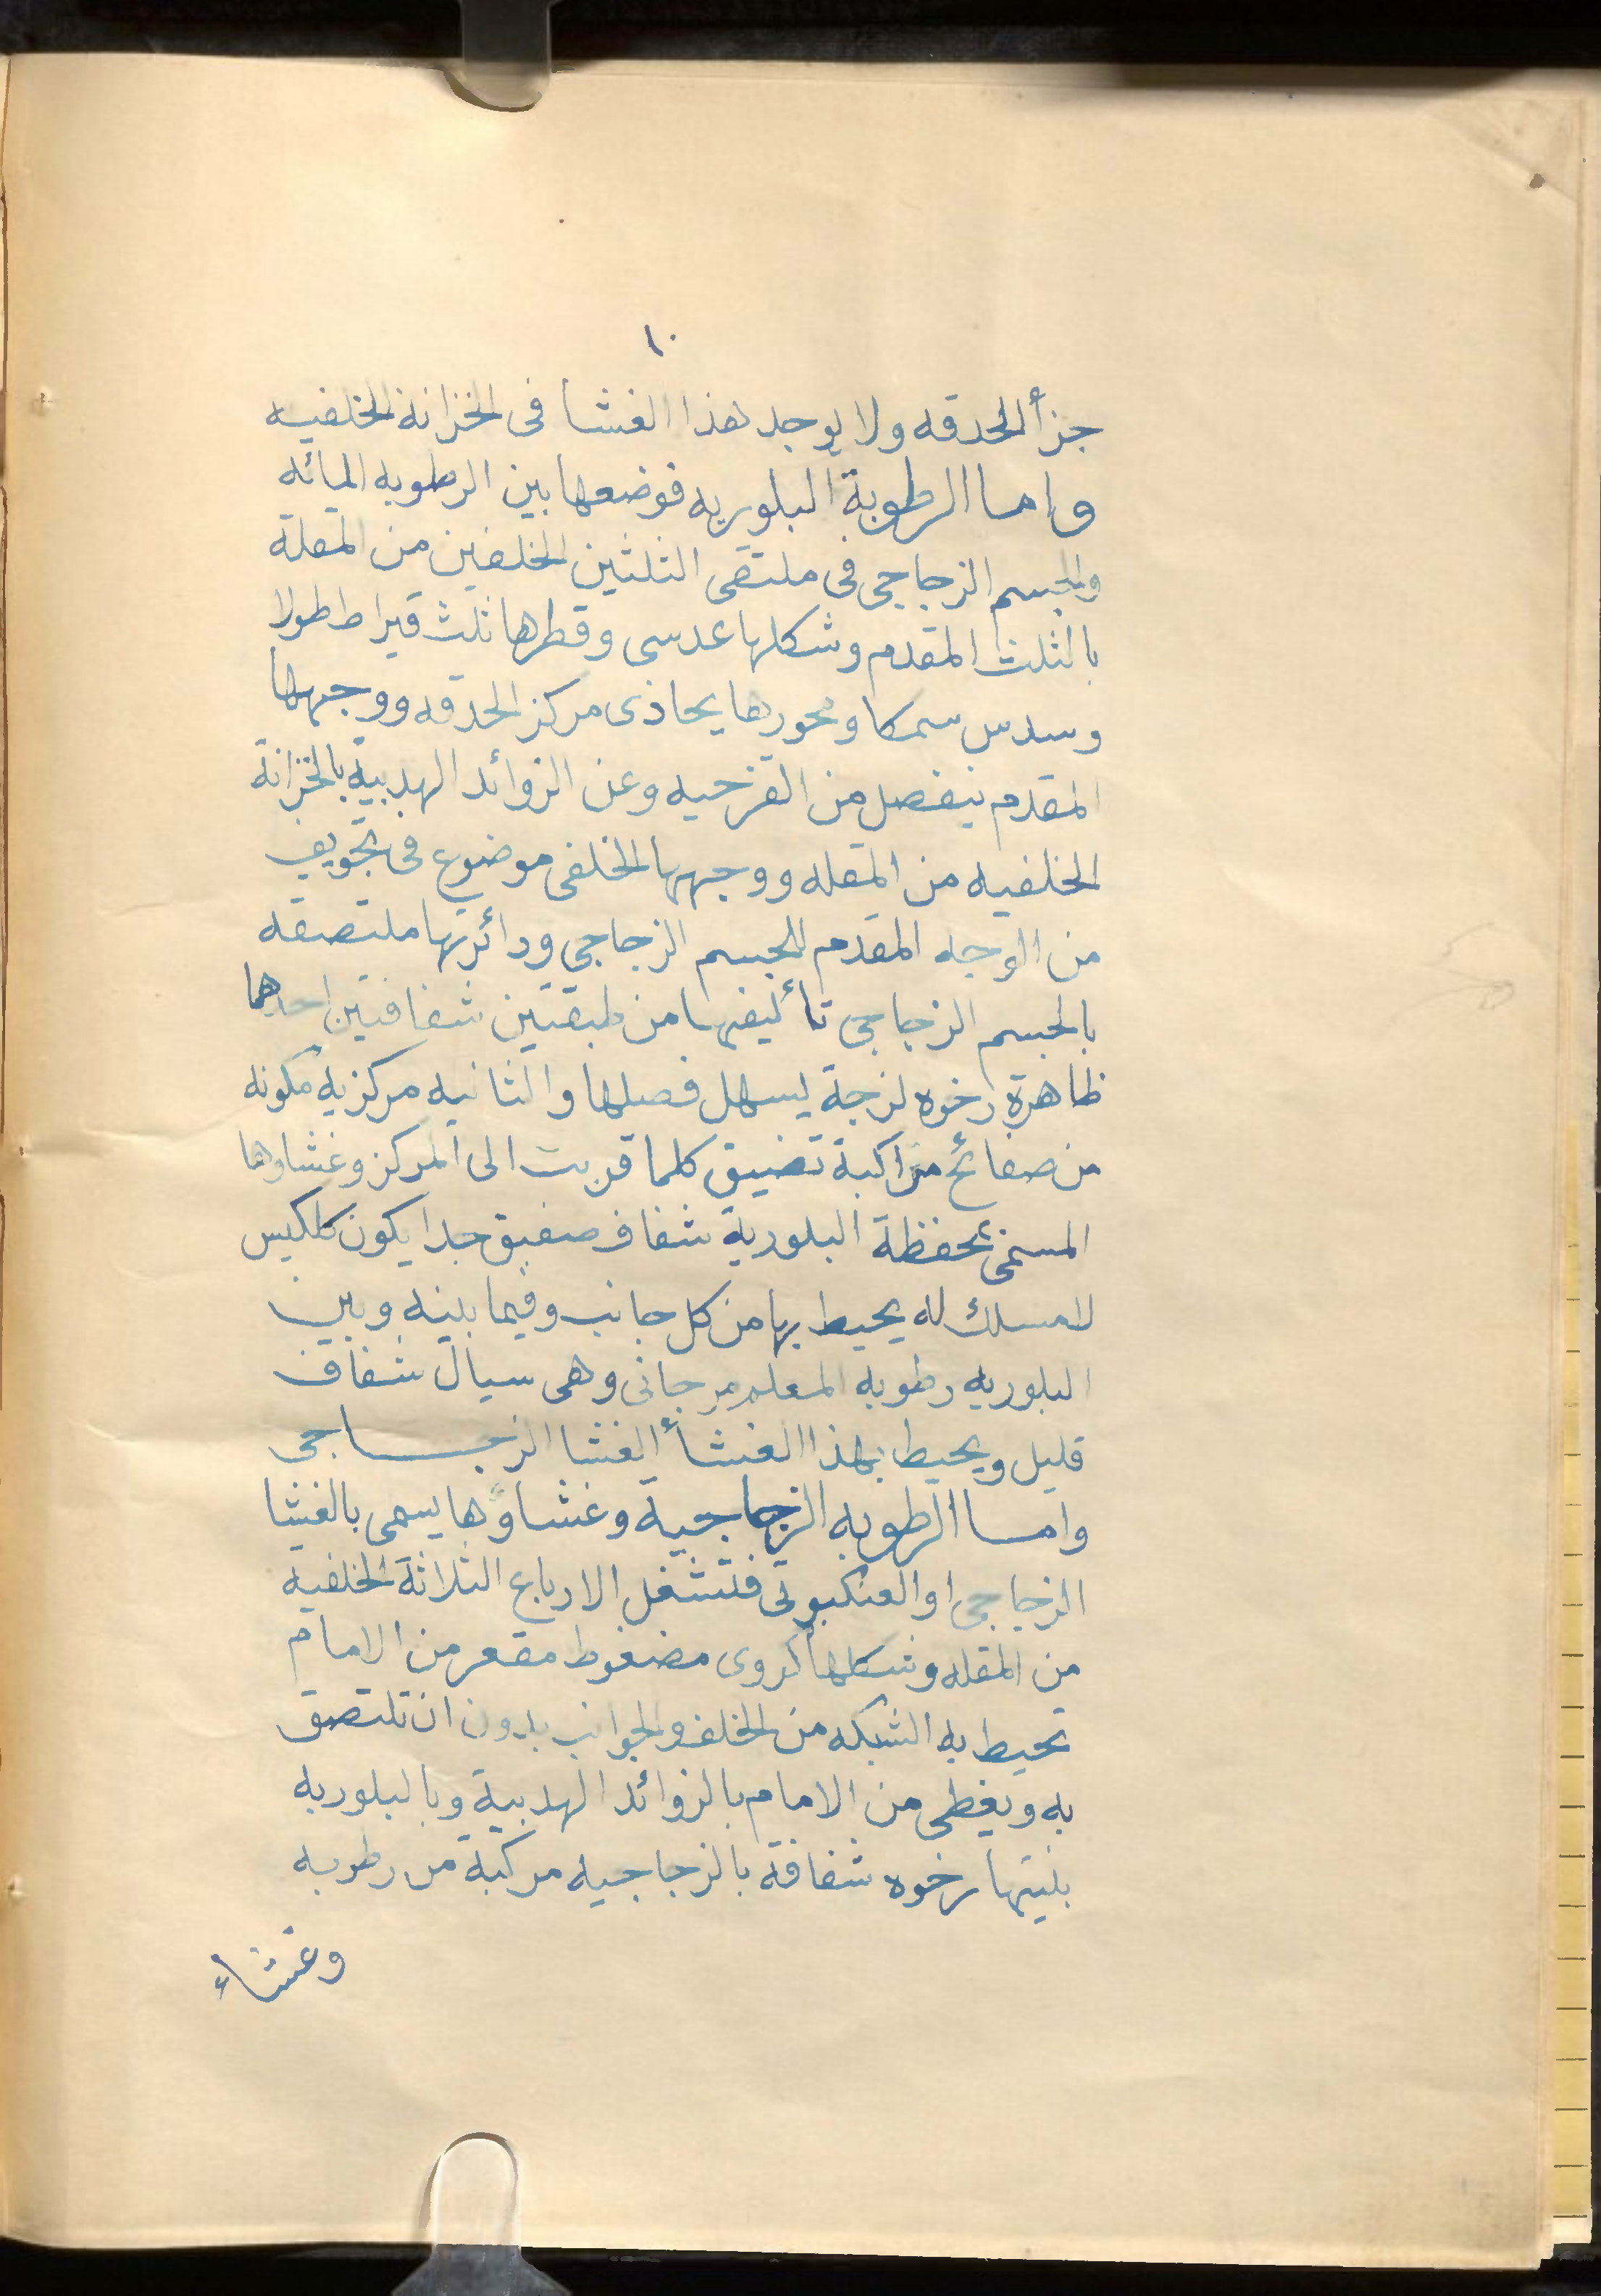 ١٠
جزأ الحدقه ولا يوجد هذا الغشا فى الخزانة الخلفيه
واما الرطوبة البلوريه فوضعها بين الرطوبه المائه
والجسم الزجاجى فى ملتقى الثلثين الخلفين من المقلة
بالثلث المقدم وشكلها عدسى وقطرها ثلث قيراط طولا
وسدس سمكا ومحورها يحاذى مركز الحدقه ووجهها
المقدم ينفصل من القزحيه وعن الزوائد الهدبية بالخزانة
الخلفيه من المقله ووجهها الخلفى موضوع فى تجويف
من الوجه المقدم للجسم الزجاجى ودائرتها ملتصقه
بالجسم الزجاجى تأليفها من طبقتين شفافتين احدهما
ظاهرة رخوه لزجة يسهل فصلها والثانيه مركزيه مكونه
من صفائح متراكبة تضيق كلما قربت الى المركز وغشاوها
المسمى بمحفظة البلورية شفاف صفيق جدا يكون كلكيس
لامسلك له يحيط بها من كل جانب وفيما بينه وبين
البلوريه رطوبه المعلم مرجانى وهى سيال شفاف
قليل ويحيط بهذا الغشأ الغشا الزجاجى
واما الرطوبه الزجاجية وغشاؤها يسمى بالغشا
الزجاجى او العنكبوتى فتشغل الارباع الثلاثة الخلفيه
من المقله وشكلها كروى مضغوط مقعر من الامام
تحيط به الشبكه من الخلف والجوانب بدون ان تلتصق
به ويغطى من الامام بالزوائد الهدبية وبالبلوريه
بنيتها رخوه شفافة بالزجاجيه مركبة من رطوبه
وغشاء